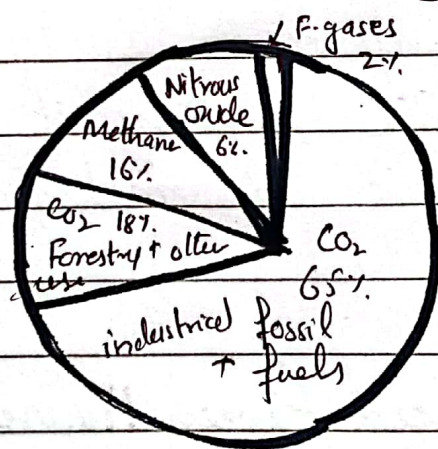 F-gases
2%.
Nitrous
oxide
6%.
Methane
16%.
CO₂ 18%.
Forestry + other
use
CO₂
65%.
industrial fossil
+ fuels